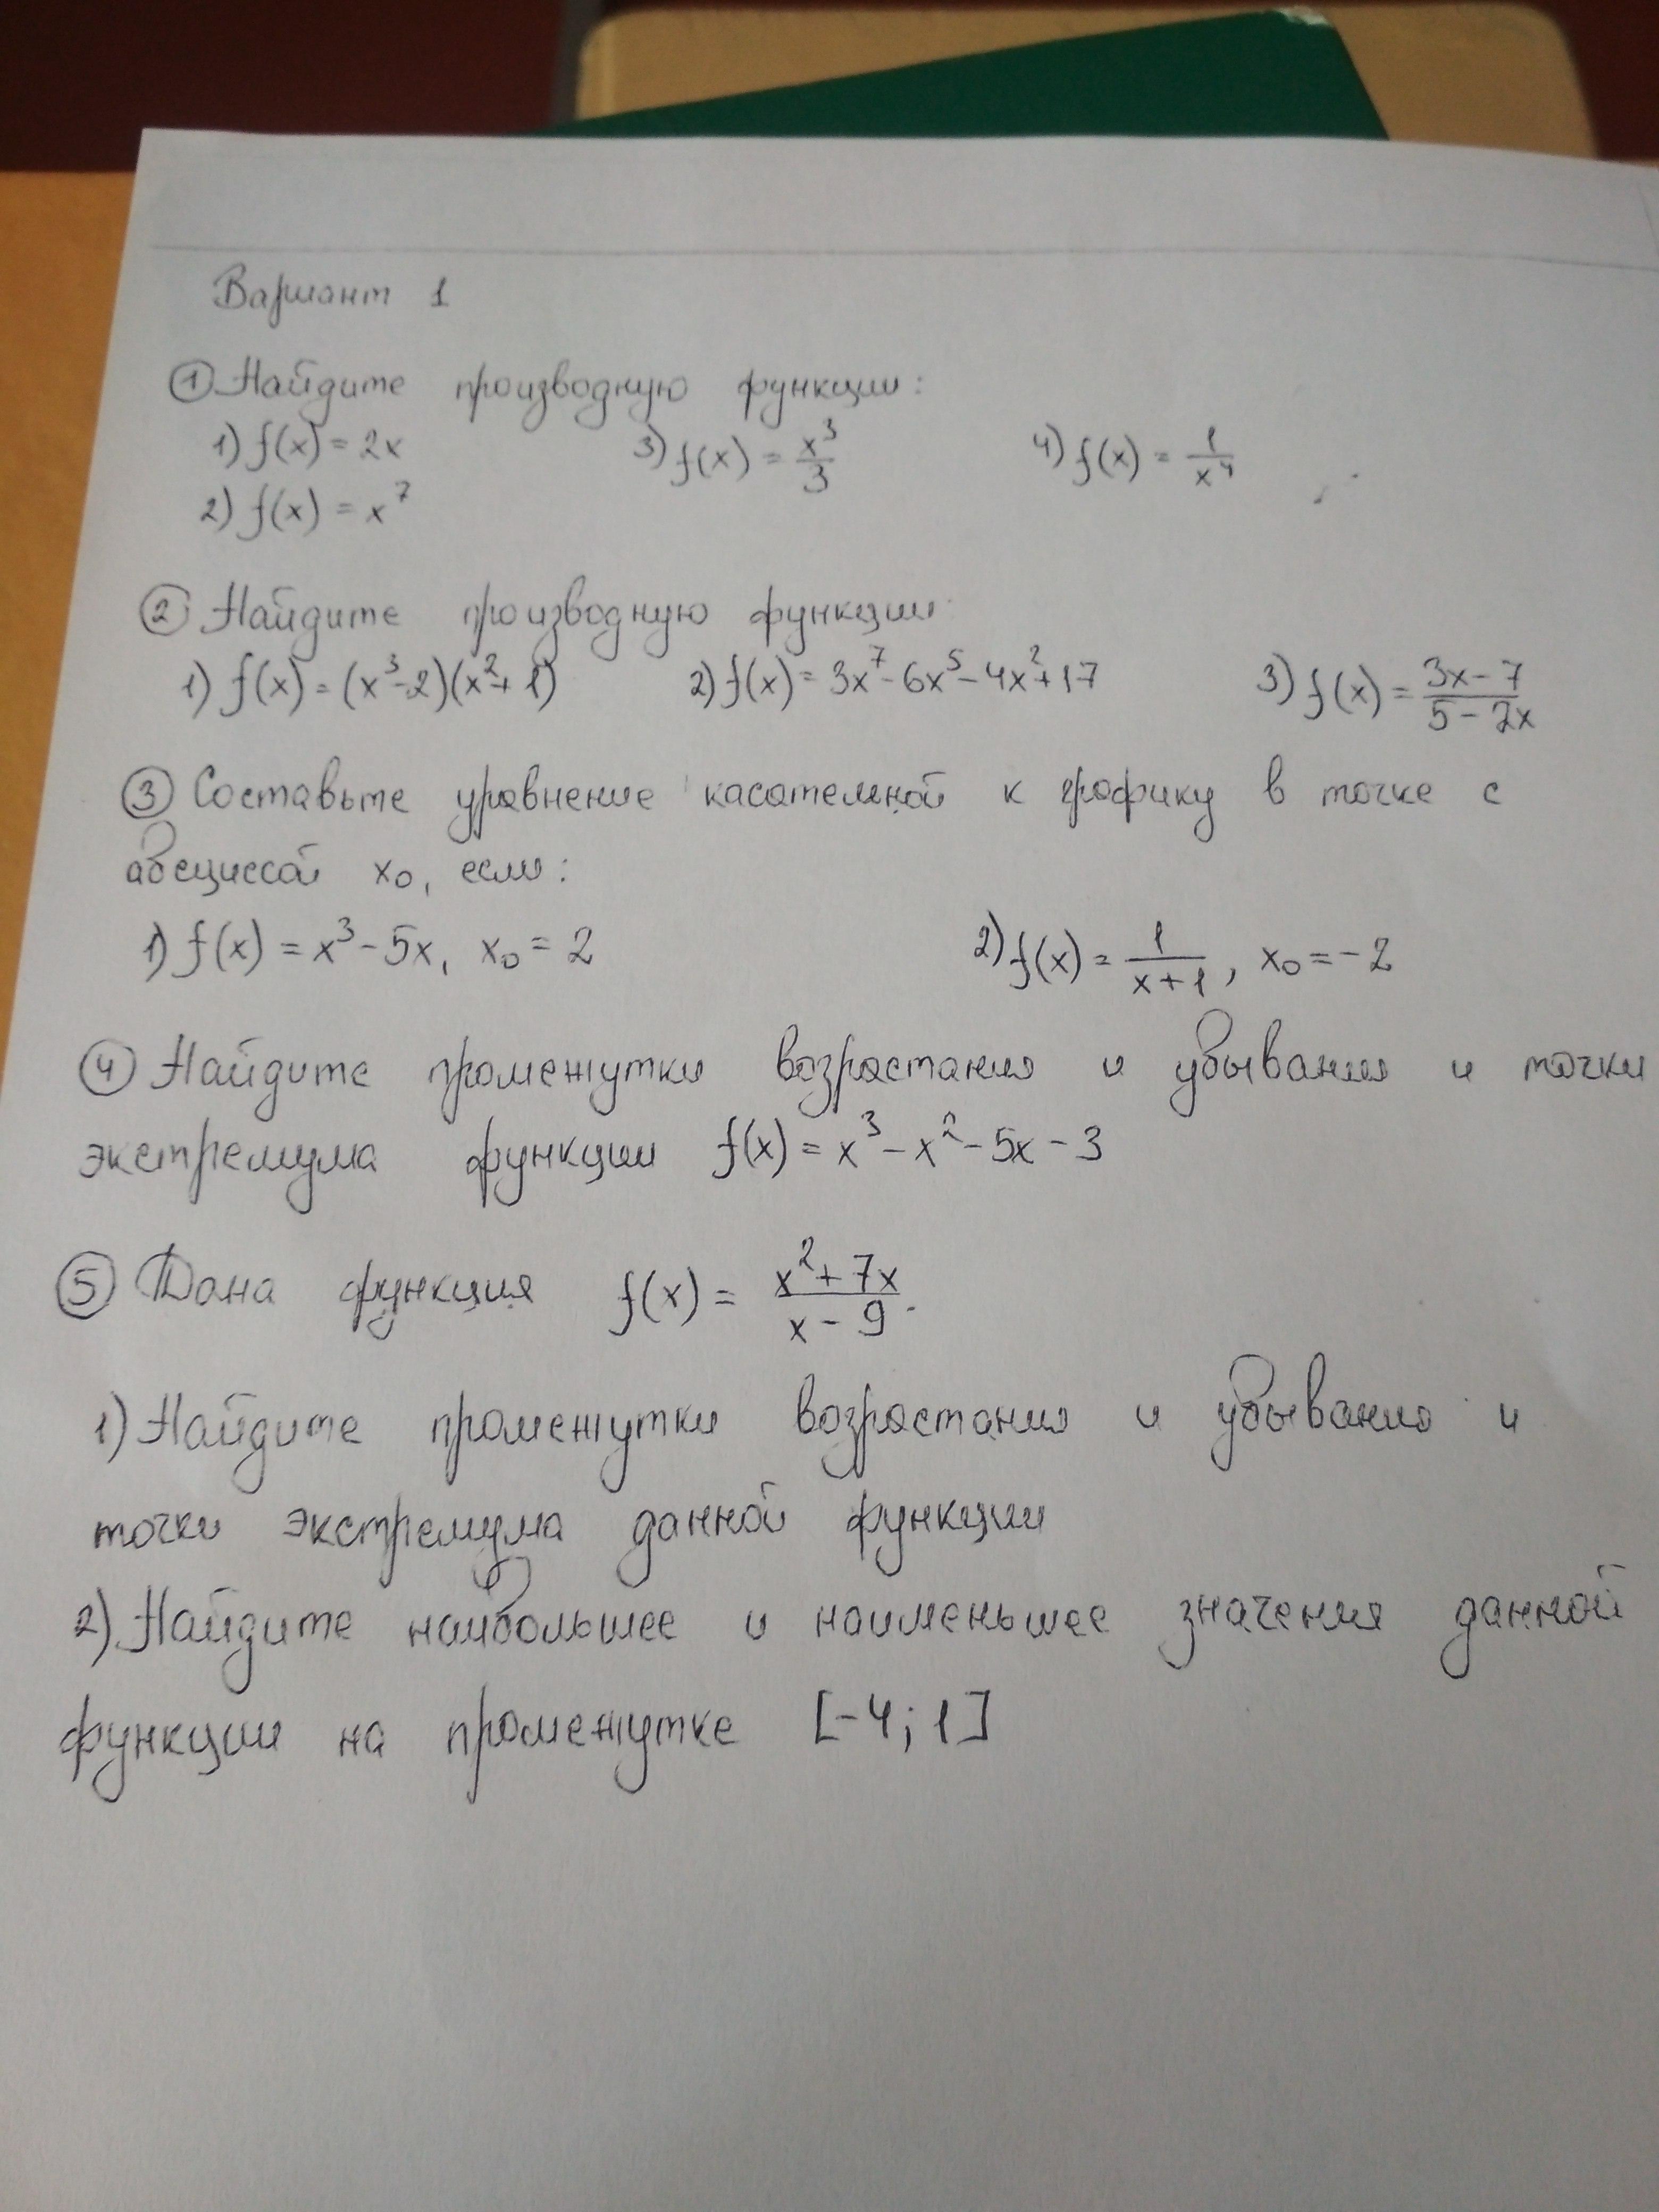 Вариант 1
① Найдите производную функции:
1) f(x) = 2x 3) f(x) = x³/3 4) f(x) = 1/x⁴
2) f(x) = x⁷
② Найдите производную функции:
1) f(x) = (x³-2)(x²+1) 2) f(x) = 3x⁷-6x⁵-4x²+17 3) f(x) = (3x-7)/(5-2x)
③ Составьте уровнение касательной к графику в точке с
абсциссой x₀, если:
1) f(x) = x³-5x, x₀ = 2 2) f(x) = 1/(x+1), x₀ = -2
④ Найдите промежутки возростания и убывания и точки
экстремума функции f(x) = x³-x²-5x-3
⑤ Дана функция f(x) = (x²+7x)/(x-9).
1) Найдите промежутки возростания и убывания и
точки экстремума данной функции
2) Найдите наибольшее и наименьшее значения данной
функции на промежутке [-4; 1]